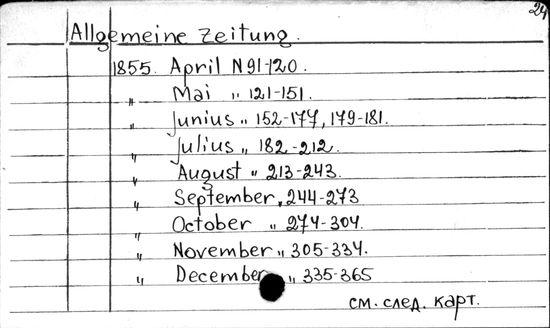 24
Allgemeine Zeitung.
1855. April N 91-120.
„ Mai „ 121-151.
„ Junius „ 152-177, 179-181.
„ Julius „ 182-212.
„ August „ 213-243.
„ September „ 244-273
„ October „ 274-304.
„ November „ 305-334.
„ December „ 335-365
см. след. карт.